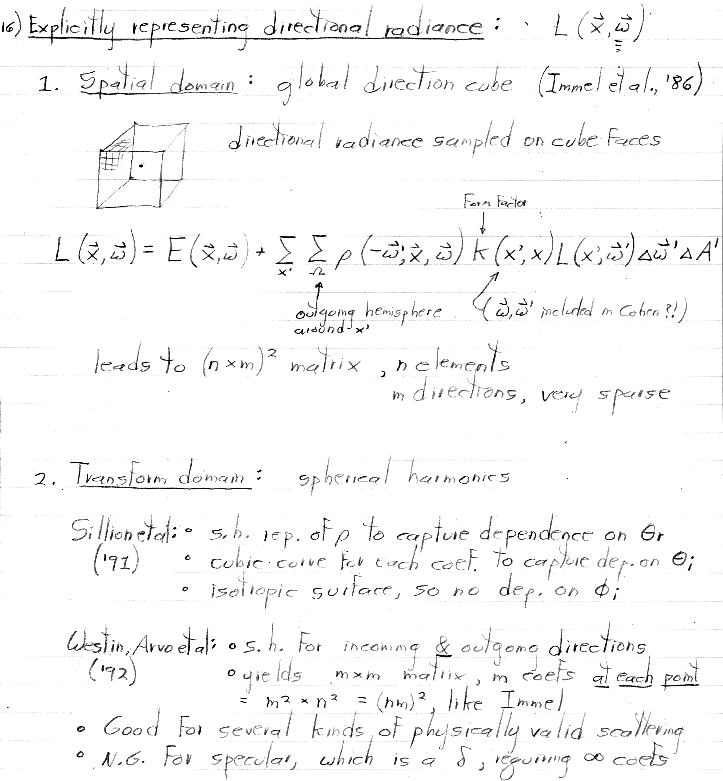 16) Explicitly representing directional radiance : L (x⃗, ω⃗)
1. Spatial domain : global direction cube (Immel et al., '86)
directional radiance sampled on cube faces
Form Factor
L (x⃗, ω⃗) = E (x⃗, ω⃗) + Σ_x' Σ_Ω ρ (-ω⃗', x⃗, ω⃗) k (x', x) L (x', ω⃗') Δω⃗' Δ A'
outgoing hemisphere (ω⃗, ω⃗' included in Cohen ?!)
around x'
leads to (n × m)² matrix , n elements
m directions, very sparse
2. Transform domain : spherical harmonics
Sillion et al: • s.h. rep. of ρ to capture dependence on Θr
('91) • cubic curve for each coef. to capture dep. on Θi
• isotropic surface, so no dep. on φi
Westin, Arvo et al: • s.h. for incoming & outgoing directions
('92) • yields m×m matrix, m coefs at each point
= m² × n² = (nm)², like Immel
• Good for several kinds of physically valid scattering
• N.G. for specular, which is a δ, requiring ∞ coefs